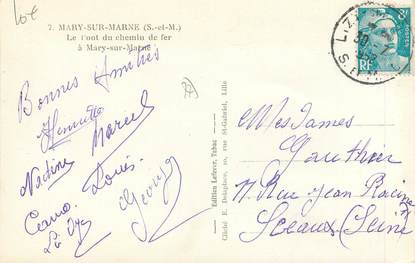 10€
7. MARY-SUR-MARNE (S.-et-M.)
Le Pont du chemin de fer
à Mary-sur-Marne
Bonnes Amitiés
Henriette
Marcel
Nadine
Louis
Georges
Edition Lefevre, Tabac
Cliché E. Delaplace, 10, rue St-Gabriel, Lille
RF
Mesdames
Gauthier
11 Rue Jean Racine
Sceaux (Seine)